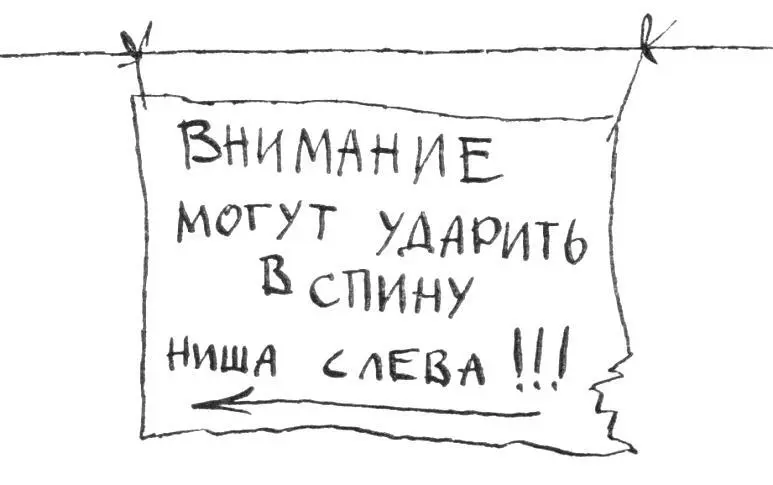 ВНИМАНИЕ
МОГУТ УДАРИТЬ
В СПИНУ
НИША СЛЕВА !!!